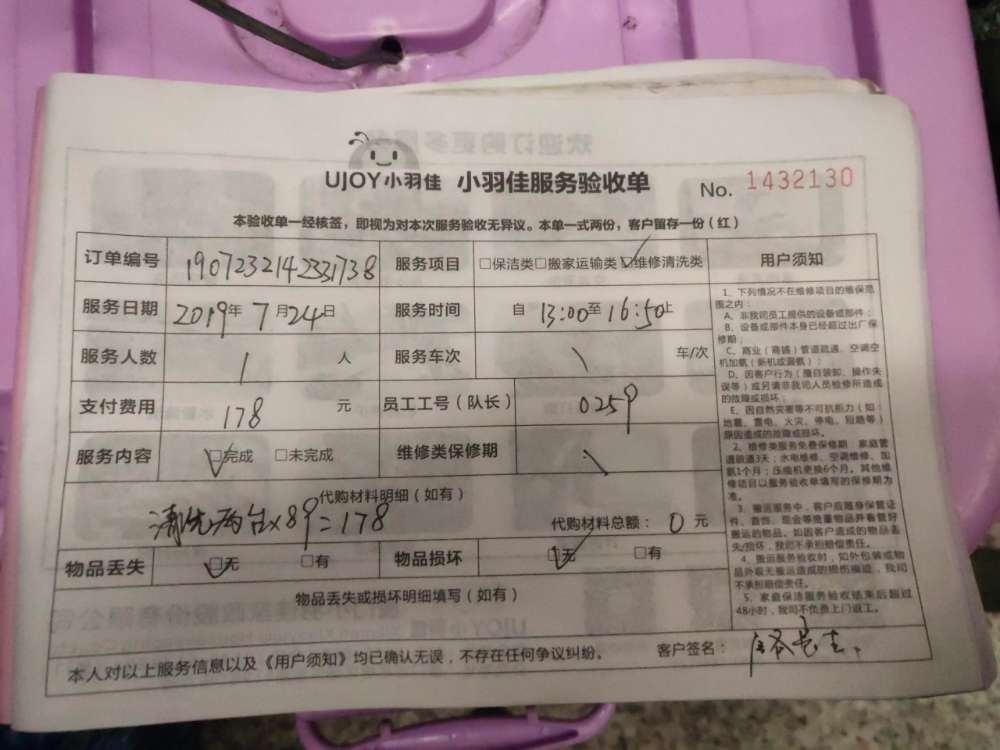 UJOY小羽佳 小羽佳服务验收单 No. 1432130
本验收单一经核签，即视为对本次服务验收无异议。本单一式两份，客户留存一份（红）
订单编号 1907232142331738 服务项目 □保洁类□搬家运输类☑维修清洗类
服务日期 2019年 7月24日 服务时间 自 13:00至16:50止
服务人数 1 人 服务车次 \ 车/次
支付费用 178 元 员工工号（队长） 0259
服务内容 ☑完成 □未完成 维修类保修期 \
代购材料明细（如有）
清洗两台x89=178 代购材料总额： 0 元
物品丢失 ☑无 □有 物品损坏 ☑无 □有
物品丢失或损坏明细填写（如有）
本人对以上服务信息以及《用户须知》均已确认无误，不存在任何争议纠纷。 客户签名：
用户须知
1、下列情况不在维修项目的维保范
围之内：
A、非我司员工提供的设备或部件；
B、设备或部件本身已经超过出厂保
修期；
C、商业（商铺）管道疏通、空调空
机加氨（新机或漏氨）；
D、因客户行为（擅自装卸、操作失
误等）或另请非我司人员检修所造成
的故障或损坏；
E、因自然灾害等不可抗拒力（如：
地震、雷电、火灾、停电、短路等）
原因造成的故障或损坏。
2、维修类服务免费保修期：家庭管
道疏通3天；水电维修、空调维修、加
氨1个月；压缩机更换6个月。其他维
修项目以服务验收单填写的保修期为
准。
3、搬运服务中，客户应随身保管证
件、首饰、现金等贵重物品并看管好
搬运的物品。如因客户造成的物品丢
失/损坏，我司不承担赔偿责任。
4、搬运服务验收时，如外包装或物
品外观无搬运造成的损伤痕迹，我司
不承担赔偿责任。
5、家庭保洁服务验收结束后超过
48小时，我司不负责上门返工。